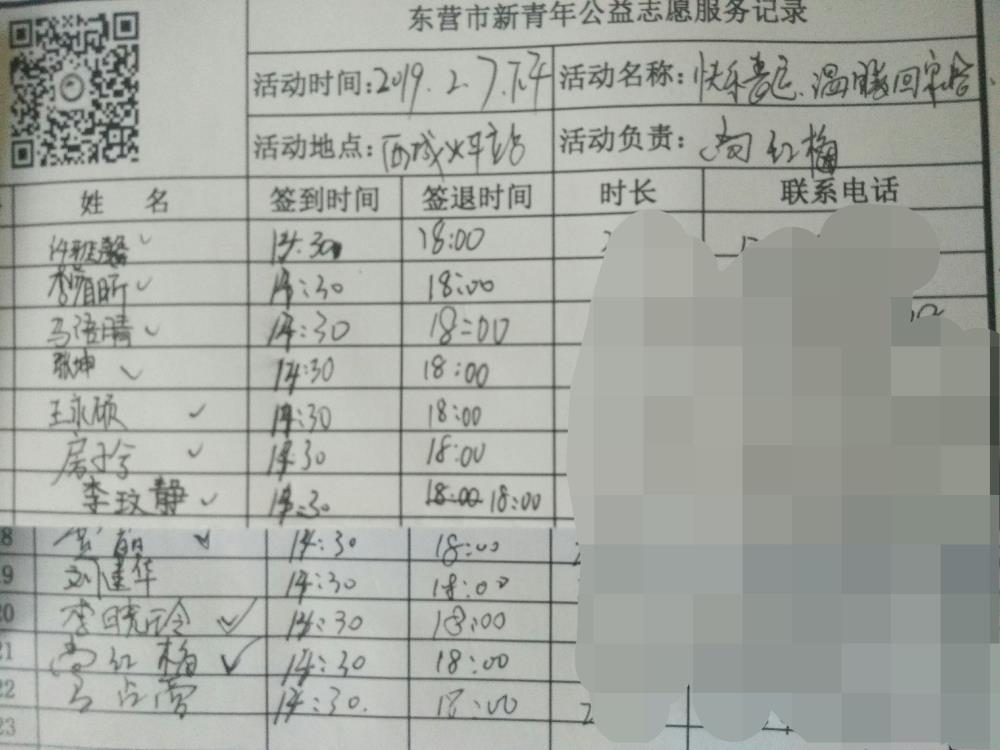 东营市新青年公益志愿服务记录
活动时间:2019.2.7. 活动名称: 快乐 温暖回家
活动地点: 西城火车站 活动负责: 尚红梅
姓 名 签到时间 签退时间 时长 联系电话
14:30 18:00
李眉昕 14:30 18:00
马语晴 14:30 18:00
张坤 14:30 18:00
王永硕 14:30 18:00
房子兮 14:30 18:00
李玟静 14:30 18:00 18:00
14:30 18:00
19 刘建华 14:30 18:00
20 李晓玲 14:30 18:00
21 尚红梅 14:30 18:00
22 14:30. 18:00
23